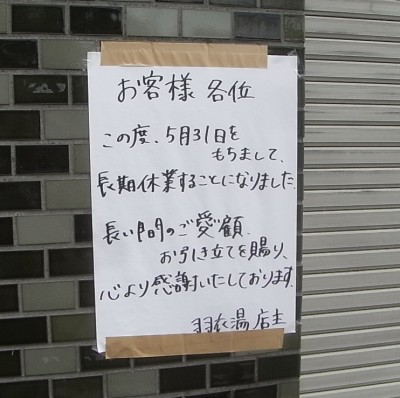 お客様 各位
この度、5月31日を
もちまして、
長期休業することになりました.
長い間のご愛顧.
お引き立てを賜り、
心より感謝いたしております.
羽衣湯 店主